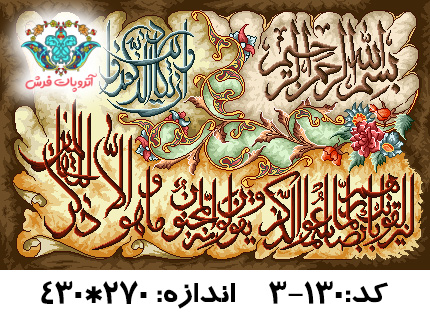 آتروپات فرش
بسم الله الرحمن الرحیم
وان یکاد الذین کفروا
لیزلقونک بابصارهم لما سمعوا الذکر و یقولون انه لمجنون و ما هو الا ذکر للعالمین
کد:۱۳۰-۳ اندازه: ۲۷۰*۴۳۰